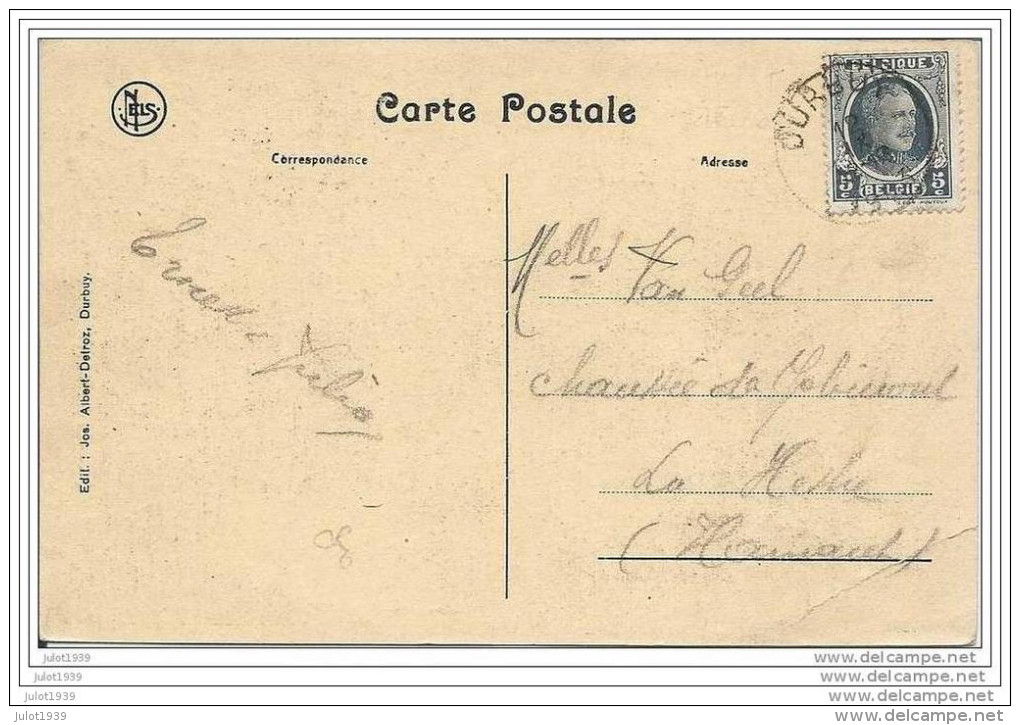 NELS
Carte Postale
Correspondance
Adresse
DURBUY
BELGIQUE
5 c BELGIE 5 c
Edit. : Jos. Albert-Delroz, Durbuy.
Melles Van Geel
Chaussée de
La Hestre
(Hainaut)
julot1939
julot1939
julot1939
julot1939
www.delcampe.net
www.delcampe.net
www.delcampe.net
www.delcampe.net